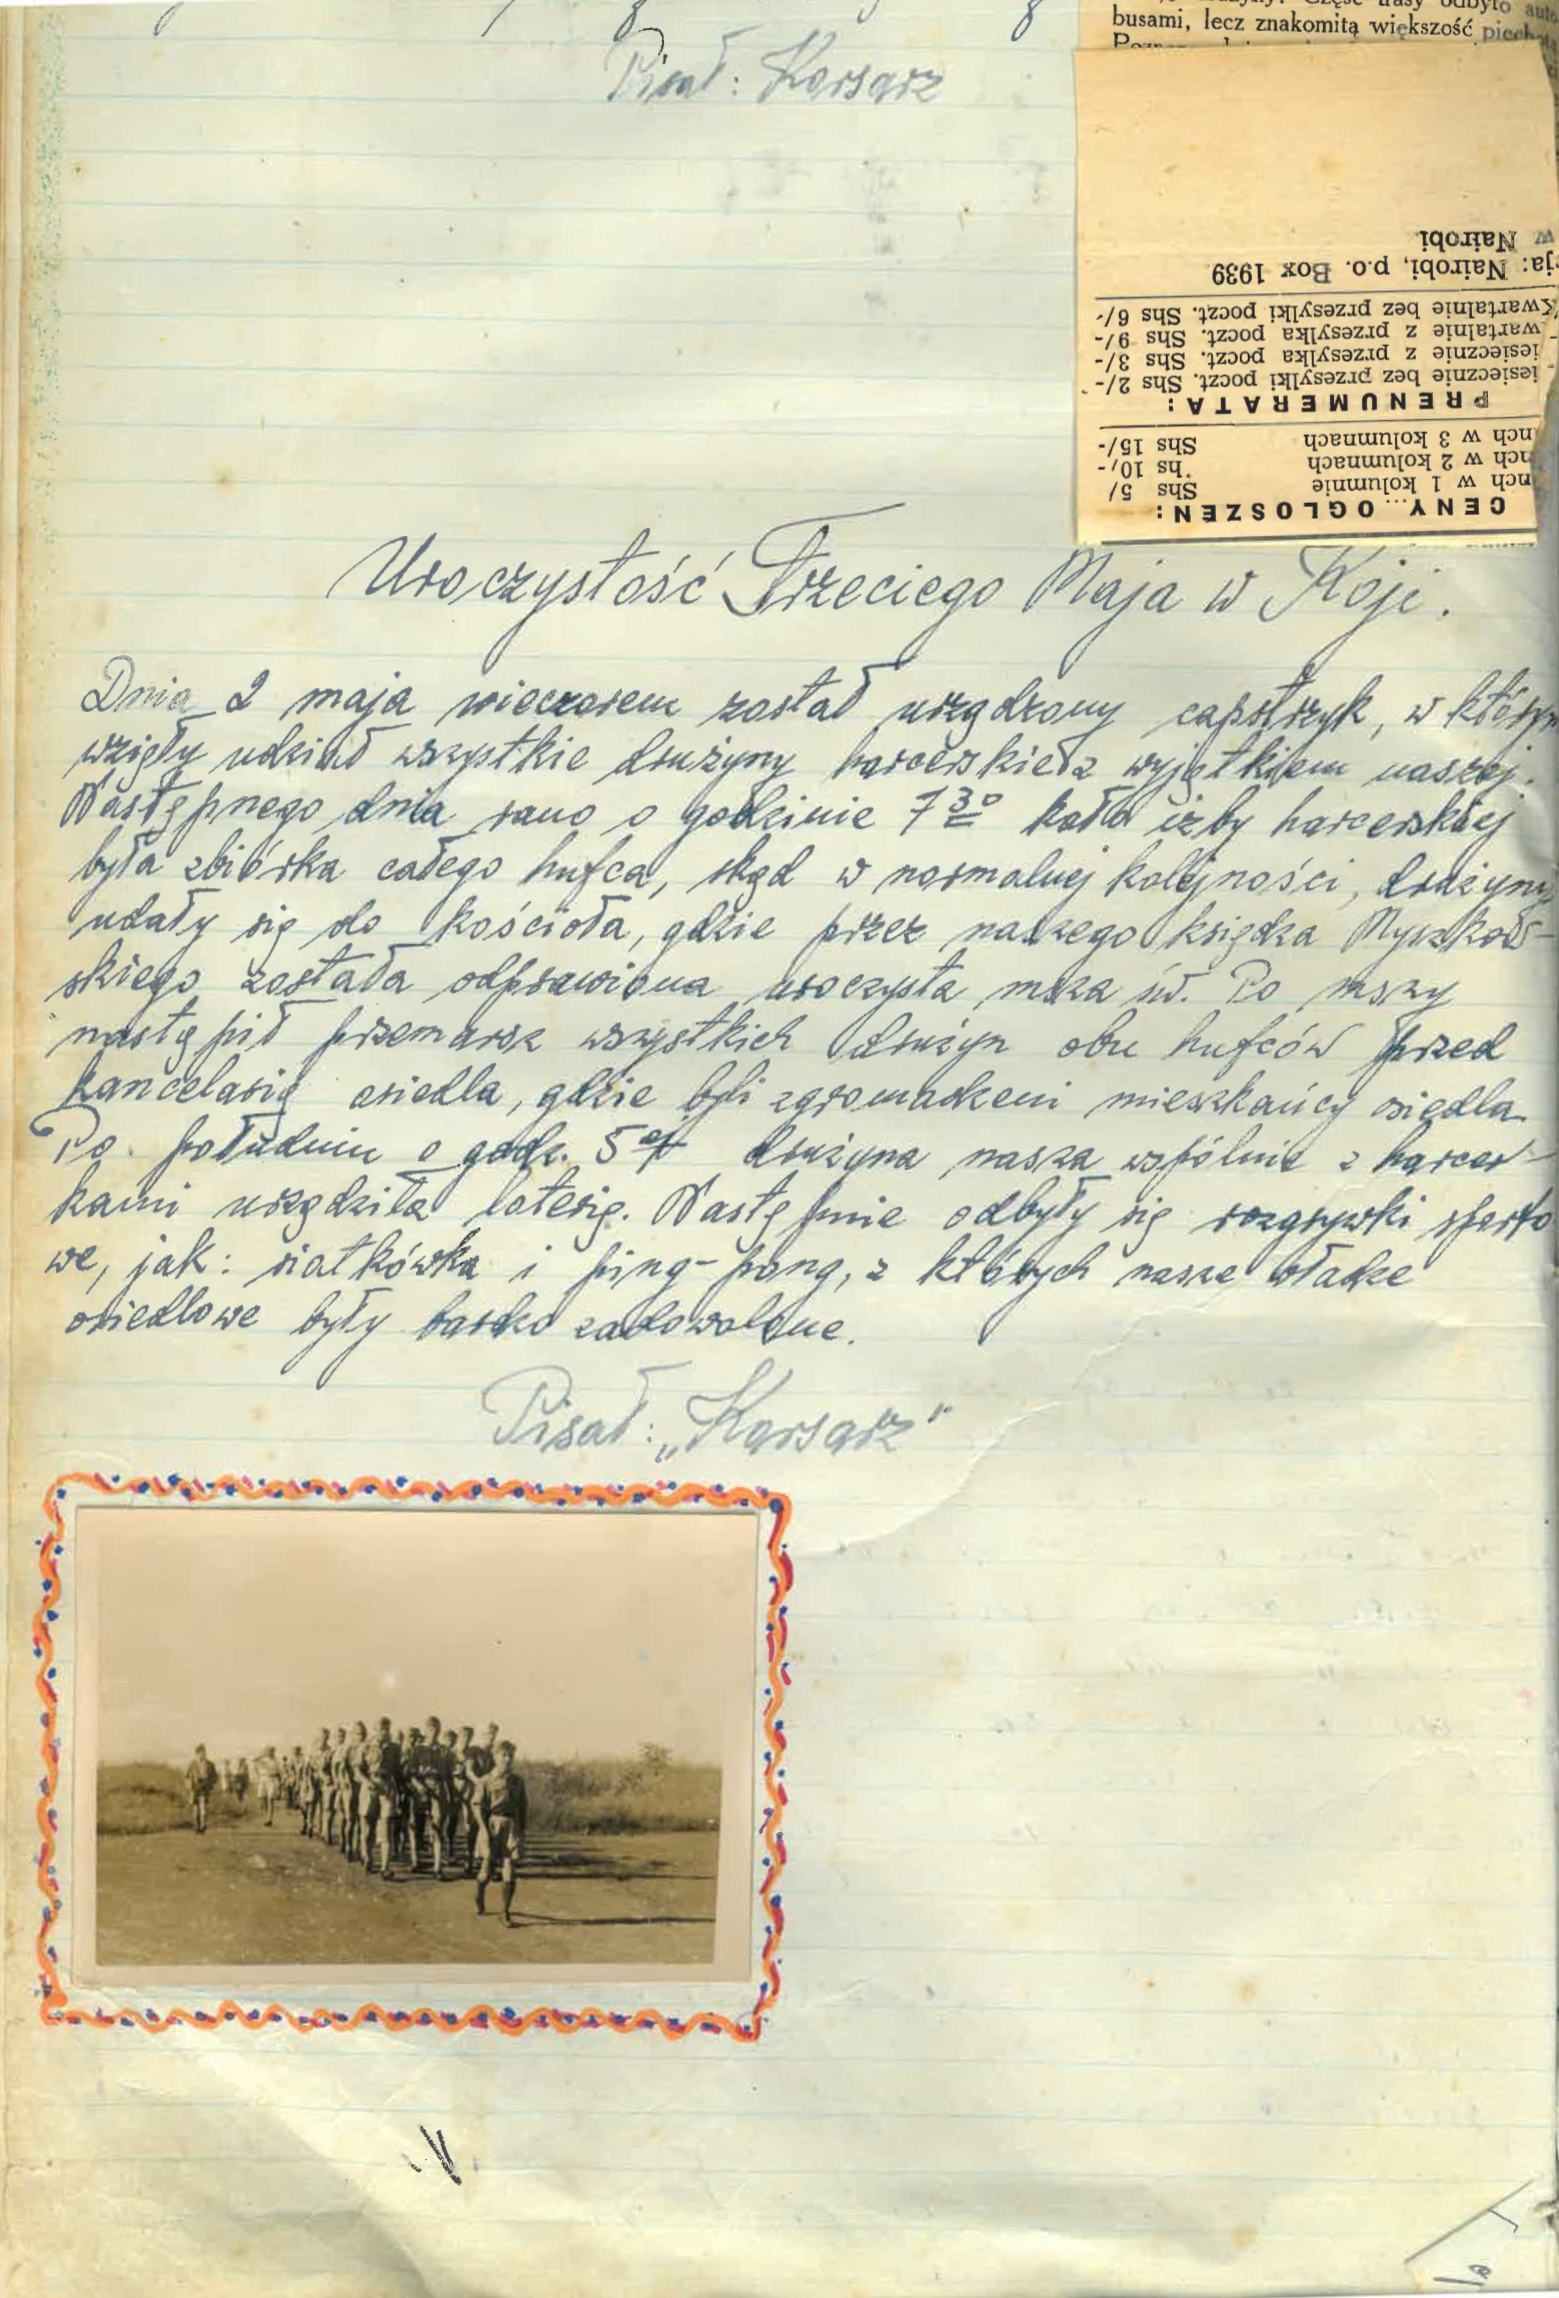 busami, lecz znakomitą większość piech
Pisał: Korsarz
CENY OGLOSZEN:
nch w 1 kolumnie Shs 5/
nch w 2 kolumnach hs 10,-
nch w 3 kolumnach Shs 15/-
PRENUMERATA:
iesiecznie bez przesylki poczt. Shs 2/-
iesiecznie z przesylka poczt. Shs 3/-
wartalnie z przesylka poczt. Shs 9/-
Kwartalnie bez przesylki poczt. Shs 6/-
cja: Nairobi, p.o. Box 1939
w Nairobi.
Uroczystość Trzeciego Maja w Koji.
Dnia 2 maja wieczorem został urządzony capstrzyk, w którym
wzięły udział wszystkie drużyny harcerskie z wyjątkiem naszej.
Następnego dnia rano o godzinie 7 30 koło izby harcerskiej
była zbiórka całego hufca, skąd w normalnej kolejności, drużyny
udały się do kościoła, gdzie przez naszego księdza Myszkow-
skiego została odprawiona uroczysta msza św. Po mszy
nastąpił przemarsz wszystkich drużyn obu hufców przed
kancelarią osiedla, gdzie byli zgromadzeni mieszkańcy osiedla.
Po południu o godz. 5 ej drużyna nasza wspólnie z harcer-
kami urządziła loterię. Następnie odbyły się rozgrywki sporto
we, jak: siatkówka i ping-pong, z których nasze władze
osiedlowe były bardzo zadowolone.
Pisał: „Korsarz"